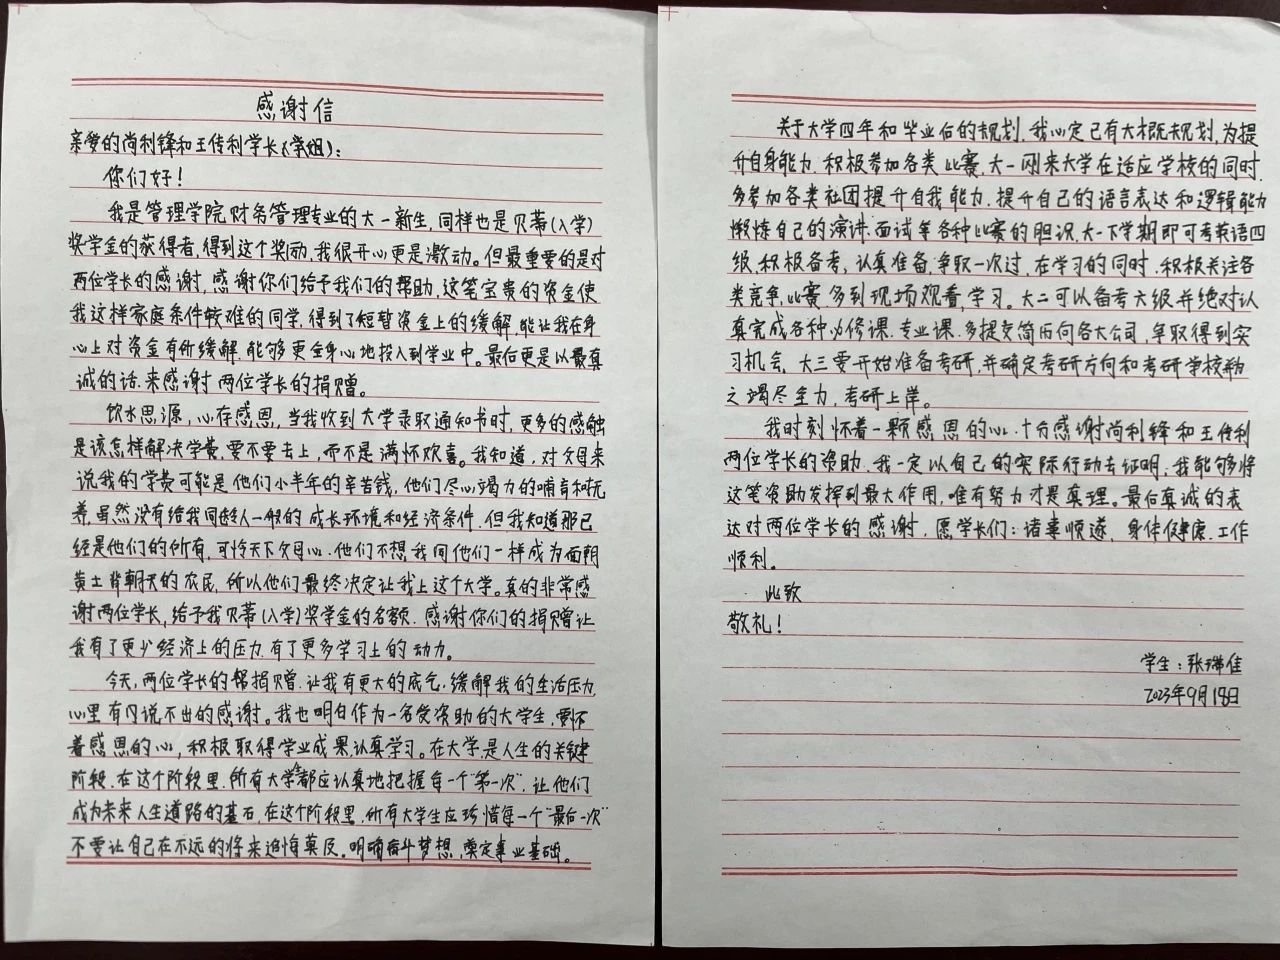 感谢信
亲爱的尚利锋和王传利学长(学姐):
你们好!
我是管理学院财务管理专业的大一新生,同样也是贝蒂(入学)
奖学金的获得者,得到这个奖励,我很开心更是激动。但最重要的是对
两位学长的感谢,感谢你们给予我们的帮助,这笔宝贵的资金使
我这样家庭条件较难的同学,得到了短暂资金上的缓解,能让我在身
心上对资金有所缓解,能够更全身心地投入到学业中。最后更是以最真
诚的话,来感谢两位学长的捐赠。
饮水思源,心存感恩,当我收到大学录取通知书时,更多的感触
是该怎样解决学费,要不要去上,而不是满怀欢喜。我知道,对父母来
说我的学费可能是他们小半年的辛苦钱,他们尽心竭力的哺育和抚
养,虽然没有给我同龄人一般的成长环境和经济条件,但我知道那已
经是他们的所有,可怜天下父母心,他们不想我同他们一样成为面朝
黄土背朝天的农民,所以他们最终决定让我上这个大学。真的非常感
谢两位学长,给予我贝蒂(入学)奖学金的名额,感谢你们的捐赠让
我有了更少经济上的压力,有了更多学习上的动力。
今天,两位学长的帮捐赠,让我有更大的底气,缓解我的生活压力,
心里有种说不出的感谢。我也明白作为一名受资助的大学生,要怀
着感恩的心,积极取得学业成果,认真学习。在大学,是人生的关键
阶段,在这个阶段里,所有大学生都应认真地把握每一个"第一次",让他们
成为未来人生道路的基石,在这个阶段里,所有大学生应珍惜每一个"最后一次"
不要让自己在不远的将来追悔莫及。明确奋斗梦想,奠定事业基础。
关于大学四年和毕业后的规划,我心定已有大概规划,为提
升自身能力,积极参加各类比赛,大一刚来大学在适应学校的同时,
多参加各类社团提升自我能力,提升自己的语言表达和逻辑能力
锻炼自己的演讲、面试等各种比赛的胆识,大一下学期即可考英语四
级,积极备考,认真准备,争取一次过,在学习的同时,积极关注各
类竞争,比赛多到现场观看,学习。大二可以备考六级并绝对认
真完成各种必修课、专业课,多提交简历向各大公司,争取得到实
习机会,大三要开始准备考研,并确定考研方向和考研学校,为
之竭尽全力,考研上岸。
我时刻怀着一颗感恩的心,十分感谢尚利锋和王传利
两位学长的资助,我一定以自己的实际行动去证明,我能够将
这笔资助发挥到最大作用,唯有努力才是真理。最后真诚的表
达对两位学长的感谢,愿学长们:诸事顺遂,身体健康,工作
顺利。
此致
敬礼!
学生:张瑞佳
2023年9月18日